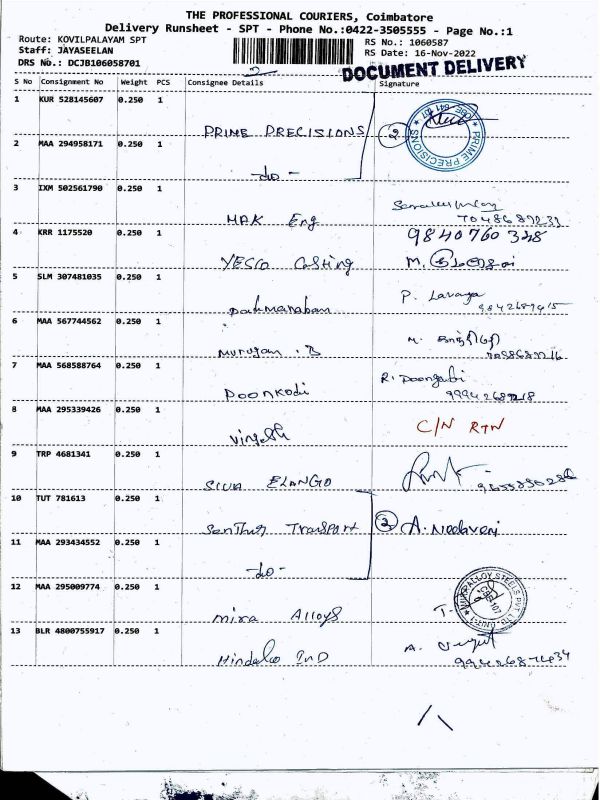 THE PROFESSIONAL COURIERS, Coimbatore
Delivery Runsheet - SPT - Phone No.:0422-3505555 - Page No.:1
Route: KOVILPALAYAM SPT
RS No.: 1060587
Staff: JAYASEELAN
RS Date: 16-Nov-2022
DRS No.: DCJB106058701
DOCUMENT DELIVERY
S No Consignment No Weight PCS Consignee Details Signature
1 KUR 528145607 0.250 1
PRIME PRECISIONS 2
PRIME PRECISIONS
2 MAA 294958171 0.250 1
-do-
3 IXM 502561790 0.250 1
MAK Eng
4 KRR 1175520 0.250 1 9840760348
YESCO Casting M.
5 SLM 307481035 0.250 1
P. Lavanya
6 MAA 567744562 0.250 1
Murugan . B M.
7 MAA 568588764 0.250 1
Poonkodi R.
8 MAA 295339426 0.250 1
C/N RTN
9 TRP 4681341 0.250 1
SIVA ELANGO
10 TUT 781613 0.250 1
Senthur Transport 2 A.
11 MAA 293434552 0.250 1
-do-
12 MAA 295009774 0.250 1
Alloys T.
ALLOY STEELS PVT. LTD. UNIT-1
13 BLR 4800755917 0.250 1
Hindalco IND A.